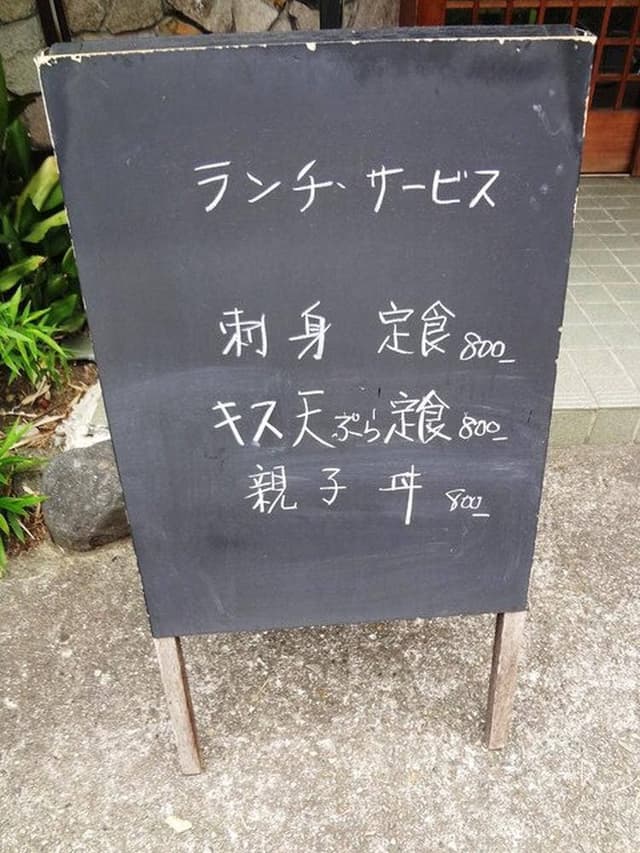 ランチ・サービス
刺身 定食 800
キス天ぷら定食 800
親子丼 800